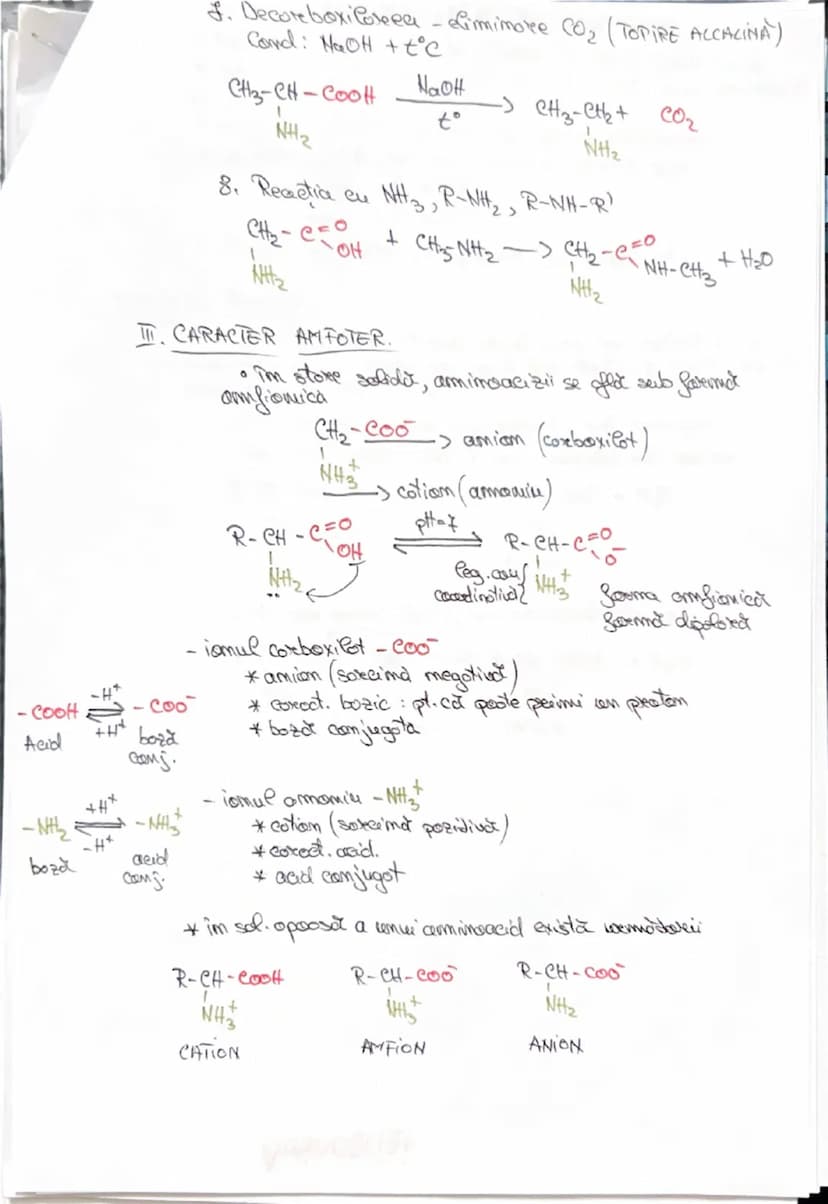 7. Decarboxilarea - eliminare CO₂ (TOPIRE ALCALINĂ)
Cond: NaOH + t°C
CH₃-CH-COOH NaOH/t° → CH₃-CH₂ + CO₂
NH₂ NH₂
8. Reacția cu NH₃, R-NH₂, R-NH-R'
CH₂-C=O \OH + CH₃-NH₂ → CH₂-C=O \NH-CH₃ + H₂O
NH₂ NH₂
III. CARACTER AMFOTER.
• în stare solidă, aminoacizii se află sub formă
amfionică
CH₂-COO⁻ → anion (carboxilat)
NH₃⁺
→ cation (amoniu)
R-CH-C=O \OH pH=7 ⇌ R-CH-C=O \O⁻
NH₂ leg. cov. NH₃⁺
coordinativă forma amfionică
formă dipolară
- ionul carboxilat -COO⁻
* anion (sarcină negativă)
* caract. bazic : pt. că poate primi un proton
* bază conjugată
-COOH -H⁺ ⇌ +H⁺ -COO⁻
Acid bază
conj.
- ionul amoniu -NH₃⁺
* cation (sarcină pozidivă)
* caract. acid.
* acid conjugat
-NH₂ +H⁺ ⇌ -H⁺ -NH₃⁺
bază acid
conj.
* în sol. apoasă a unui aminoacid există următorii
R-CH-COOH R-CH-COO⁻ R-CH-COO⁻
NH₃⁺ NH₃⁺ NH₂
CATION AMFION ANION